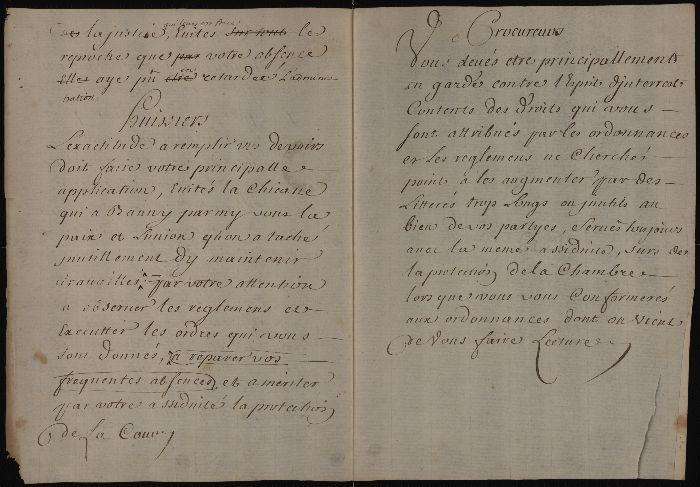 la justice, Evités sur tout le
reproche que par votre absence
elles aye pu être retardée L'adminis-
tration
huissiers
L'exactitude a remplir vos devoirs
doit faire votre principalle
application, Evités la Chicane
qui a Banny parmy vous la
paix et L'union qu'on a taché
inutillement dy maintenir
travaillés par votre attention
a observer les reglemens et
Executter les ordres qui vous
sont donnés, a reparer vos
frequentes absences et a meriter
par votre assiduité la protection
de La Cour
Procureurs
Vous devés etre principallement
en garde contre l'Esprit d'interest
Contents des Droits qui vous
sont attribués par les ordonnances
et les reglemens ne Cherchés
point a les augmenter par des
Ecritures trop Longs ou inutils au
bien de vos partyes, servés toujours
avec la meme assiduité, surs de
la protection de la Chambre
lorsque vous vous Conformerés
aux ordonnances dont on vient
de vous faire Lecture